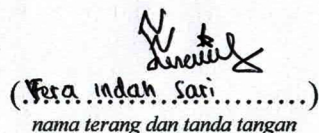 (Fera indah Sari)
nama terang dan tanda tangan